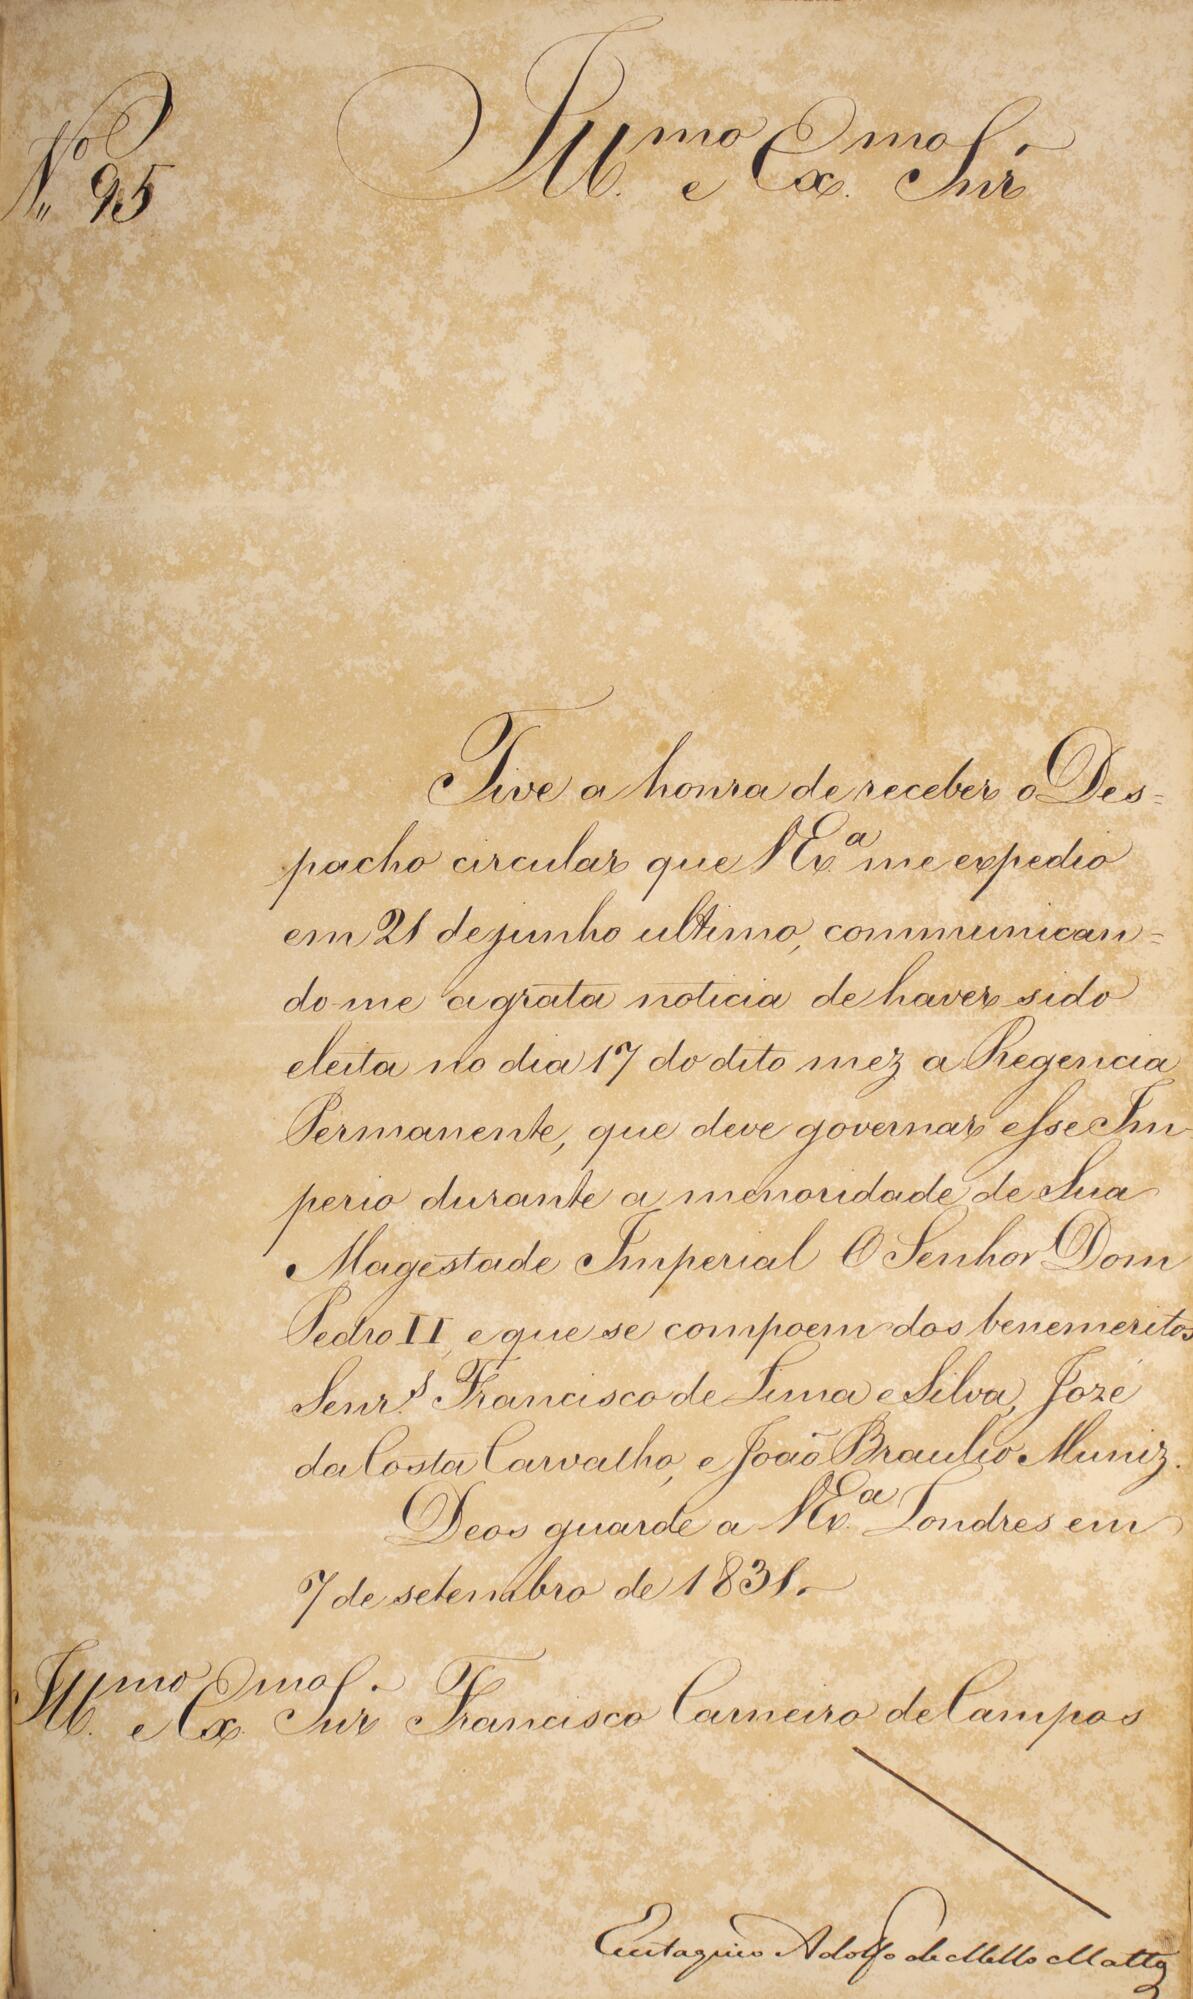 Nº 95
Illmo e Exmo Snr.
Tive a honra de receber o Des=
pacho circular que V Exª me expedio
em 21 de junho ultimo, communican=
do-me a grata noticia de haver sido
eleita no dia 17 do dito mez a Regencia
Permanente, que deve governar esse Im-
perio durante a menoridade de Sua
Magestade Imperial O Senhor Dom
Pedro II, e que se compoem dos benemeritos
Senr.s Francisco de Lima e Silva, Jozé
da Costa Carvalho, e João Braulio Muniz.
Deos guarde a V Exª Londres em
7 de setembro de 1831.
Illmo e Exmo Snr. Francisco Carneiro de Campos
Eustaquio Adolfo de Mello Mattos